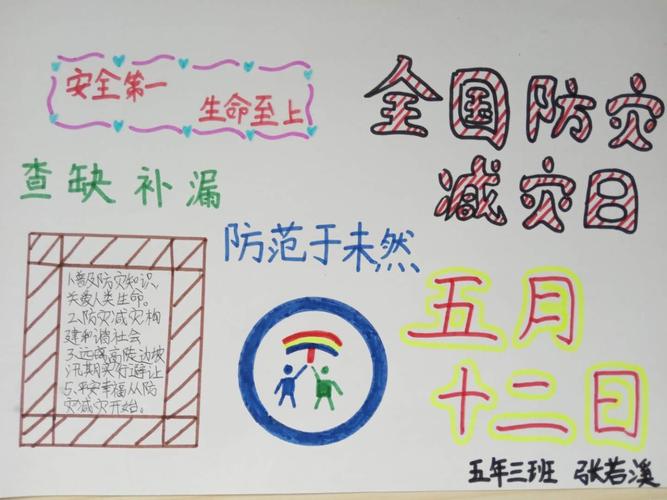 安全第一
生命至上
全国防灾
减灾日
查缺补漏
防范于未然
1.普及防灾知识
关爱人类生命。
2.防灾减灾构
建和谐社会
3.远离高陡边坡
汛期实行避让
5.平安幸福从防
灾减灾开始。
五月
十二日
五年三班 张若溪